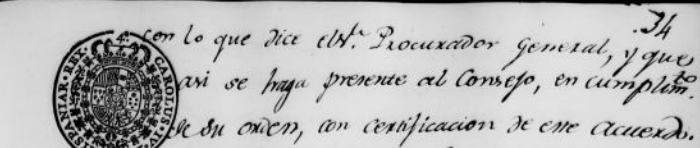 34
con lo que dice el S.r Procurador General, y que
asi se haga presente al Consejo, en cumplim.to
de su orden, con certificacion de este acuerdo.
HISPANIAR. REX. CAROLUS. IV.